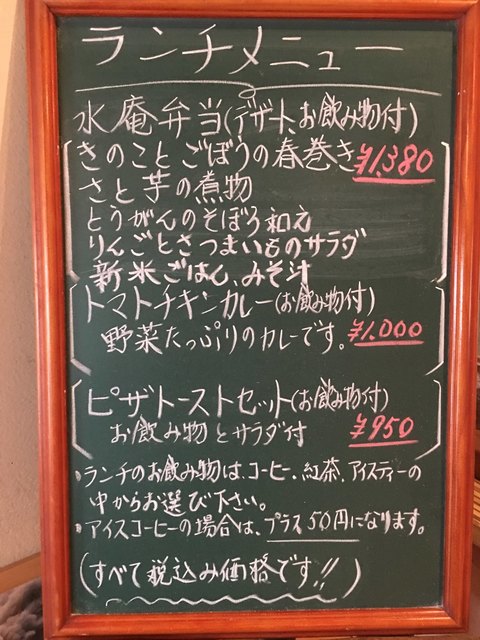 ランチメニュー
水庵弁当(デザート、お飲み物付)
きのことごぼうの春巻き ¥1,380
さと芋の煮物
とうがんのそぼろ和え
りんごとさつまいものサラダ
新米ごはん、みそ汁
トマトチキンカレー(お飲み物付)
野菜たっぷりのカレーです。 ¥1,000
ピザトーストセット(お飲み物付)
お飲み物とサラダ付 ¥950
・ランチのお飲み物は、コーヒー、紅茶、アイスティーの
中からお選び下さい。
・アイスコーヒーの場合は、プラス50円になります。
(すべて税込み価格です!!)